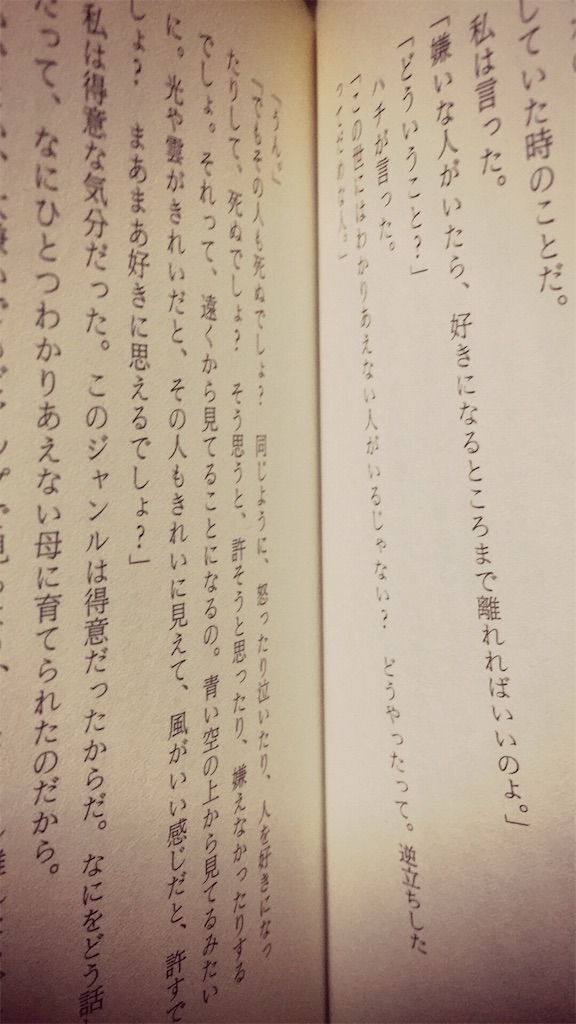 していた時のことだ。
私は言った。
「嫌いな人がいたら、好きになるところまで離れればいいのよ。」
「どういうこと?」
ハチが言った。
「この世にはわかりあえない人がいるじゃない? どうやったって。逆立ちした
「うん。」
「でもその人も死ぬでしょ? 同じように、怒ったり泣いたり、人を好きになっ
たりして、死ぬでしょ? そう思うと、許そうと思ったり、嫌えなかったりする
でしょ。それって、遠くから見てることになるの。青い空の上から見てるみたい
に。光や雲がきれいだと、その人もきれいに見えて、風がいい感じだと、許すで
しょ? まあまあ好きに思えるでしょ?」
私は得意な気分だった。このジャンルは得意だったからだ。なにをどう話
たって、なにひとつわかりあえない母に育てられたのだから。